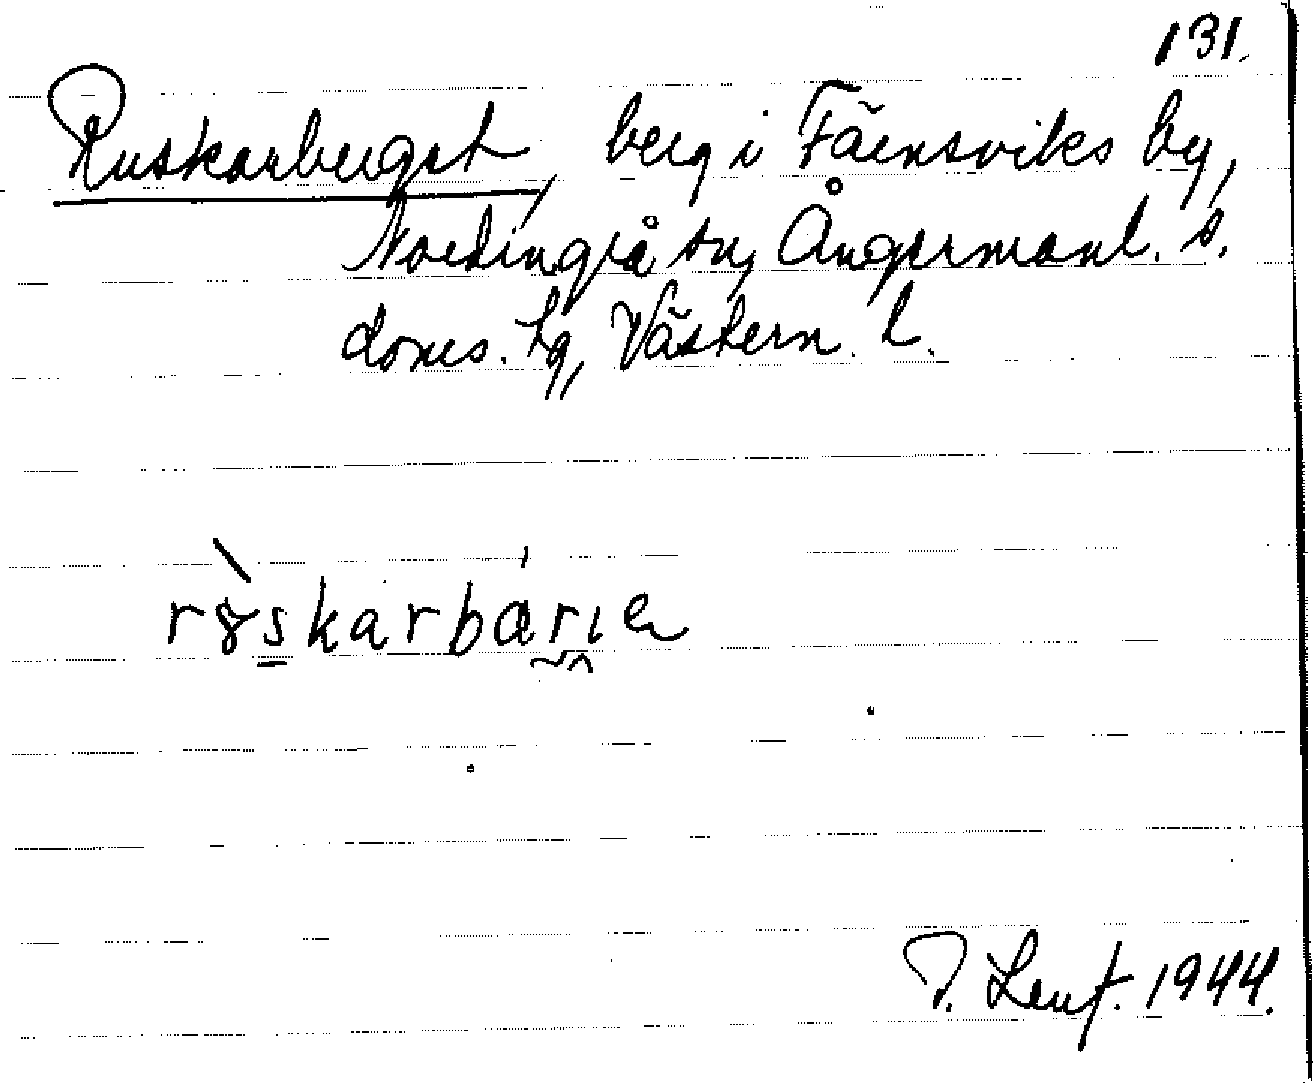 131.
Ruskarberget, berg i Fäensviks by,
Nordingrå sn, Ångermanl. s.
doms. tg, Västern. l.
Leuf. 1944.